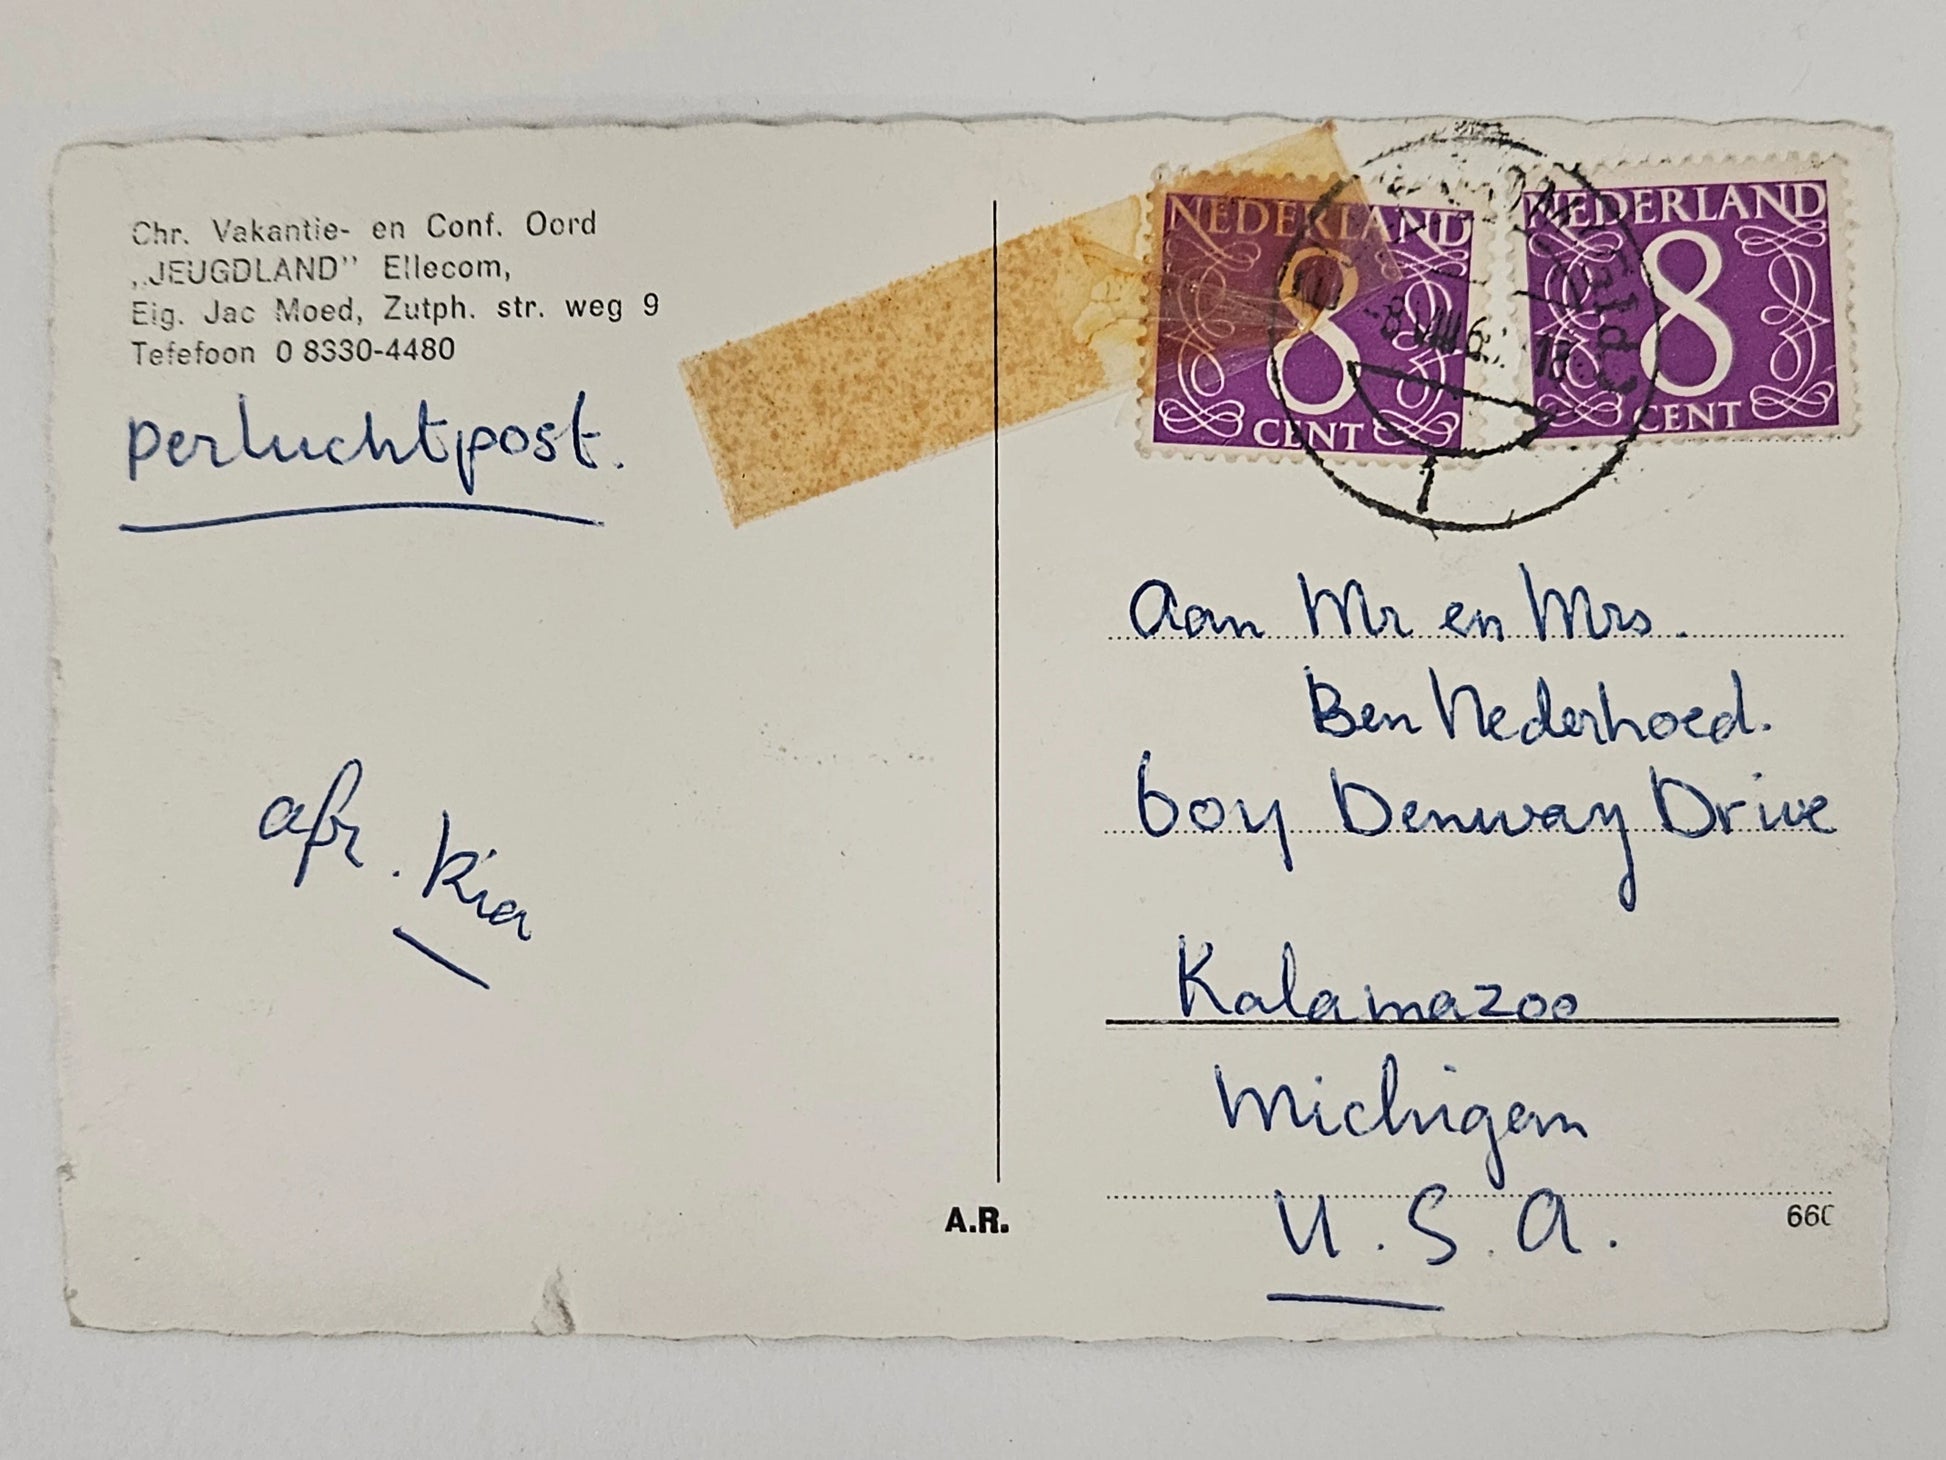 Chr. Vakantie- en Conf. Oord
„JEUGDLAND'' Ellecom,
Eig. Jac Moed, Zutph. str. weg 9
Tefefoon 0 8330-4480
per luchtpost.
afz. Kia
NEDERLAND
8
CENT
NEDERLAND
8
CENT
-8 VIII 6 18
Aan Mr en Mrs.
Ben Nederhoed.
Denway Drive
Kalamazoo
Michigan
U.S.A.
A.R.
660